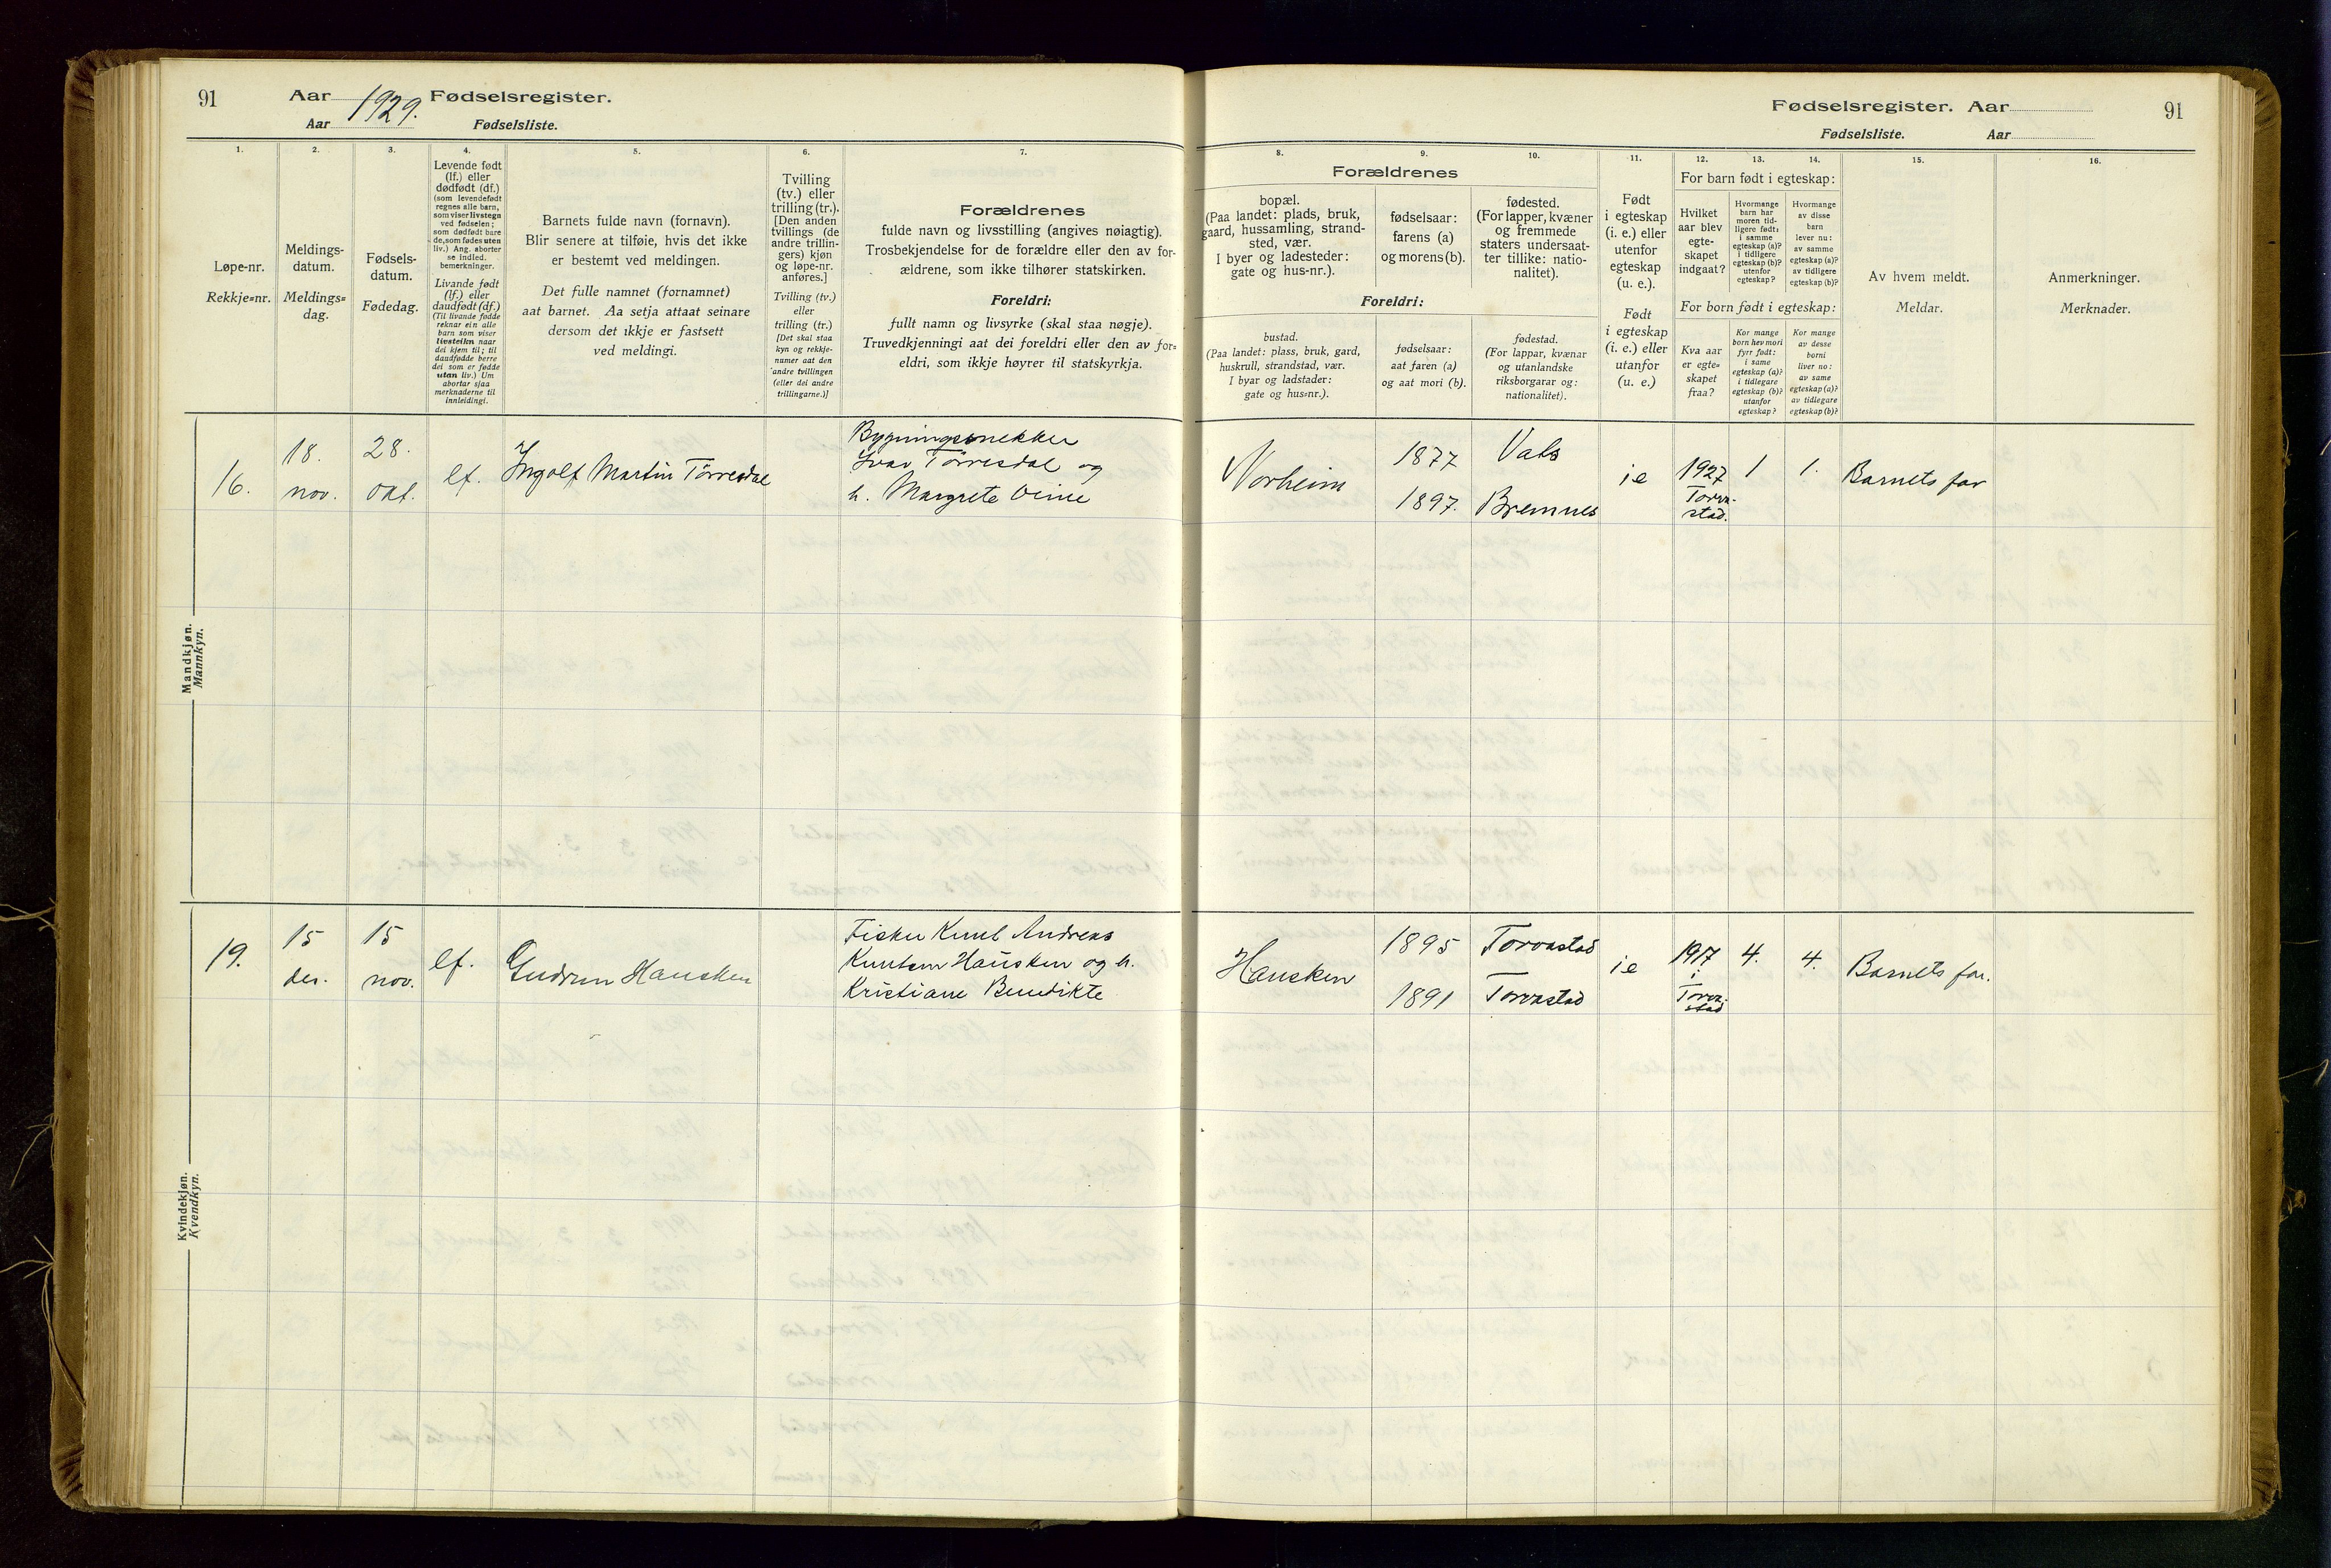 91 Aar 1929. Fødselsregister.
Aar Fødselsliste.
Fødselsregister. Aar 91
Fødselsliste. Aar
1. 2. 3. 4. 5. 6. 7.
Løpe-nr.
Rekkje=nr.
Meldings-
datum.
Meldings=
dag.
Fødsels-
datum.
Fødedag.
Levende født
(lf.) eller
dødfødt (df.)
(som levendefødt
regnes alle barn,
som viser livstegn
ved fødselen;
som dødfødt bare
de, som fødes uten
liv.) Ang. aborter
se indled.
bemerkninger.
Livande født
(lf.) eller
daudfødt (df.)
(Til livande fødde
reknar ein alle
barn som viser
livsteikn naar
dei kjem til; til
daudfødde berre
dei som er fødde
utan liv.) Um
abortar sjaa
merknaderne til
innleidingi.
Barnets fulde navn (fornavn).
Blir senere at tilføie, hvis det ikke
er bestemt ved meldingen.
Det fulle namnet (fornamnet)
aat barnet. Aa setja attaat seinare
dersom det ikkje er fastsett
ved meldingi.
Tvilling
(tv.) eller
trilling (tr.).
[Den anden
tvillings (de
andre trillin-
gers) kjøn
og løpe-nr.
anføres.]
Tvilling (tv.)
eller
trilling (tr.)
[Det skal staa
kyn og rekkje-
numer aat den
andre tvillingen
(eller dei andre
trillingarne.)]
Forældrenes
fulde navn og livsstilling (angives nøiagtig).
Trosbekjendelse for de forældre eller den av for-
ældrene, som ikke tilhører statskirken.
Foreldri:
fullt namn og livsyrke (skal staa nøgje).
Truvedkjenningi aat dei foreldri eller den av for=
eldri, som ikkje høyrer til statskyrkja.
8. 9. 10. 11. 12. 13. 14. 15. 16.
Forældrenes
bopæl.
(Paa landet: plads, bruk,
gaard, hussamling, strand-
sted, vær.
I byer og ladesteder:
gate og hus-nr.).
fødselsaar:
farens (a)
og morens (b).
fødested.
(For lapper, kvæner
og fremmede
staters undersaat-
ter tillike: natio-
nalitet).
Foreldri:
bustad.
(Paa landet: plass, bruk, gard,
huskrull, strandstad, vær.
I byar og ladstader:
gate og hus=nr.).
fødselsaar:
aat faren (a)
og aat mori (b).
fødestad.
(For lappar, kvænar
og utanlandske
riksborgarar og:
nationalitet).
Født
i egteskap
(i. e.) eller
utenfor
egteskap
(u. e.).
Født
i egteskap
(i. e.) eller
utanfor
(u. e.)
For barn født i egteskap:
Hvilket
aar blev
egte-
skapet
indgaat?
Hvormange
barn har
moren tid-
ligere født:
i samme
egteskap (a)?
i tidligere
egteskap (b)?
utenfor
egteskap?
Hvormange
av disse
barn
lever nu:
av samme
egteskap (a)?
av tidligere
egteskap (b)?
For born født i egteskap:
Kva aar
er egte=
skapet
fraa?
Kor mange
born hev mori
fyrr født:
i same
egteskap (a)?
i tidlegare
egteskap (b)?
utanfor
egteskap?
Kor mange
av desse
borni
liver no:
av same
egteskap (a)?
av tidlegare
egteskap (b)?
Av hvem meldt.
Meldar.
Anmerkninger.
Merknader.
Mandkjøn.
Mannkyn.
16. 18. nov. 28. okt. lf. Ingolf Martin Tørresdal
Bygningssnekker
Ivar Tørresdal og
h. Margrete Veine
Norheim 1877 Vats
1897. Bremnes
ie 1927 Torva-
stad. 1 1. Barnets far
Kvindekjøn.
Kvendkyn.
19. 15 des. 15 nov. lf. Gudrun Hausken
Fisker Knut Andreas
Knutsen Hausken og h.
Kristiane Bendikte
Hausken 1895 Torvastad
1891 Torvastad
ie 1917 i Torva-
stad 4. 4. Barnets far.